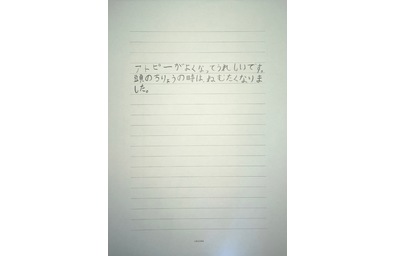 アトピーがよくなってうれしいです。
頭のちりょうの時は、ねむたくなりま
した。